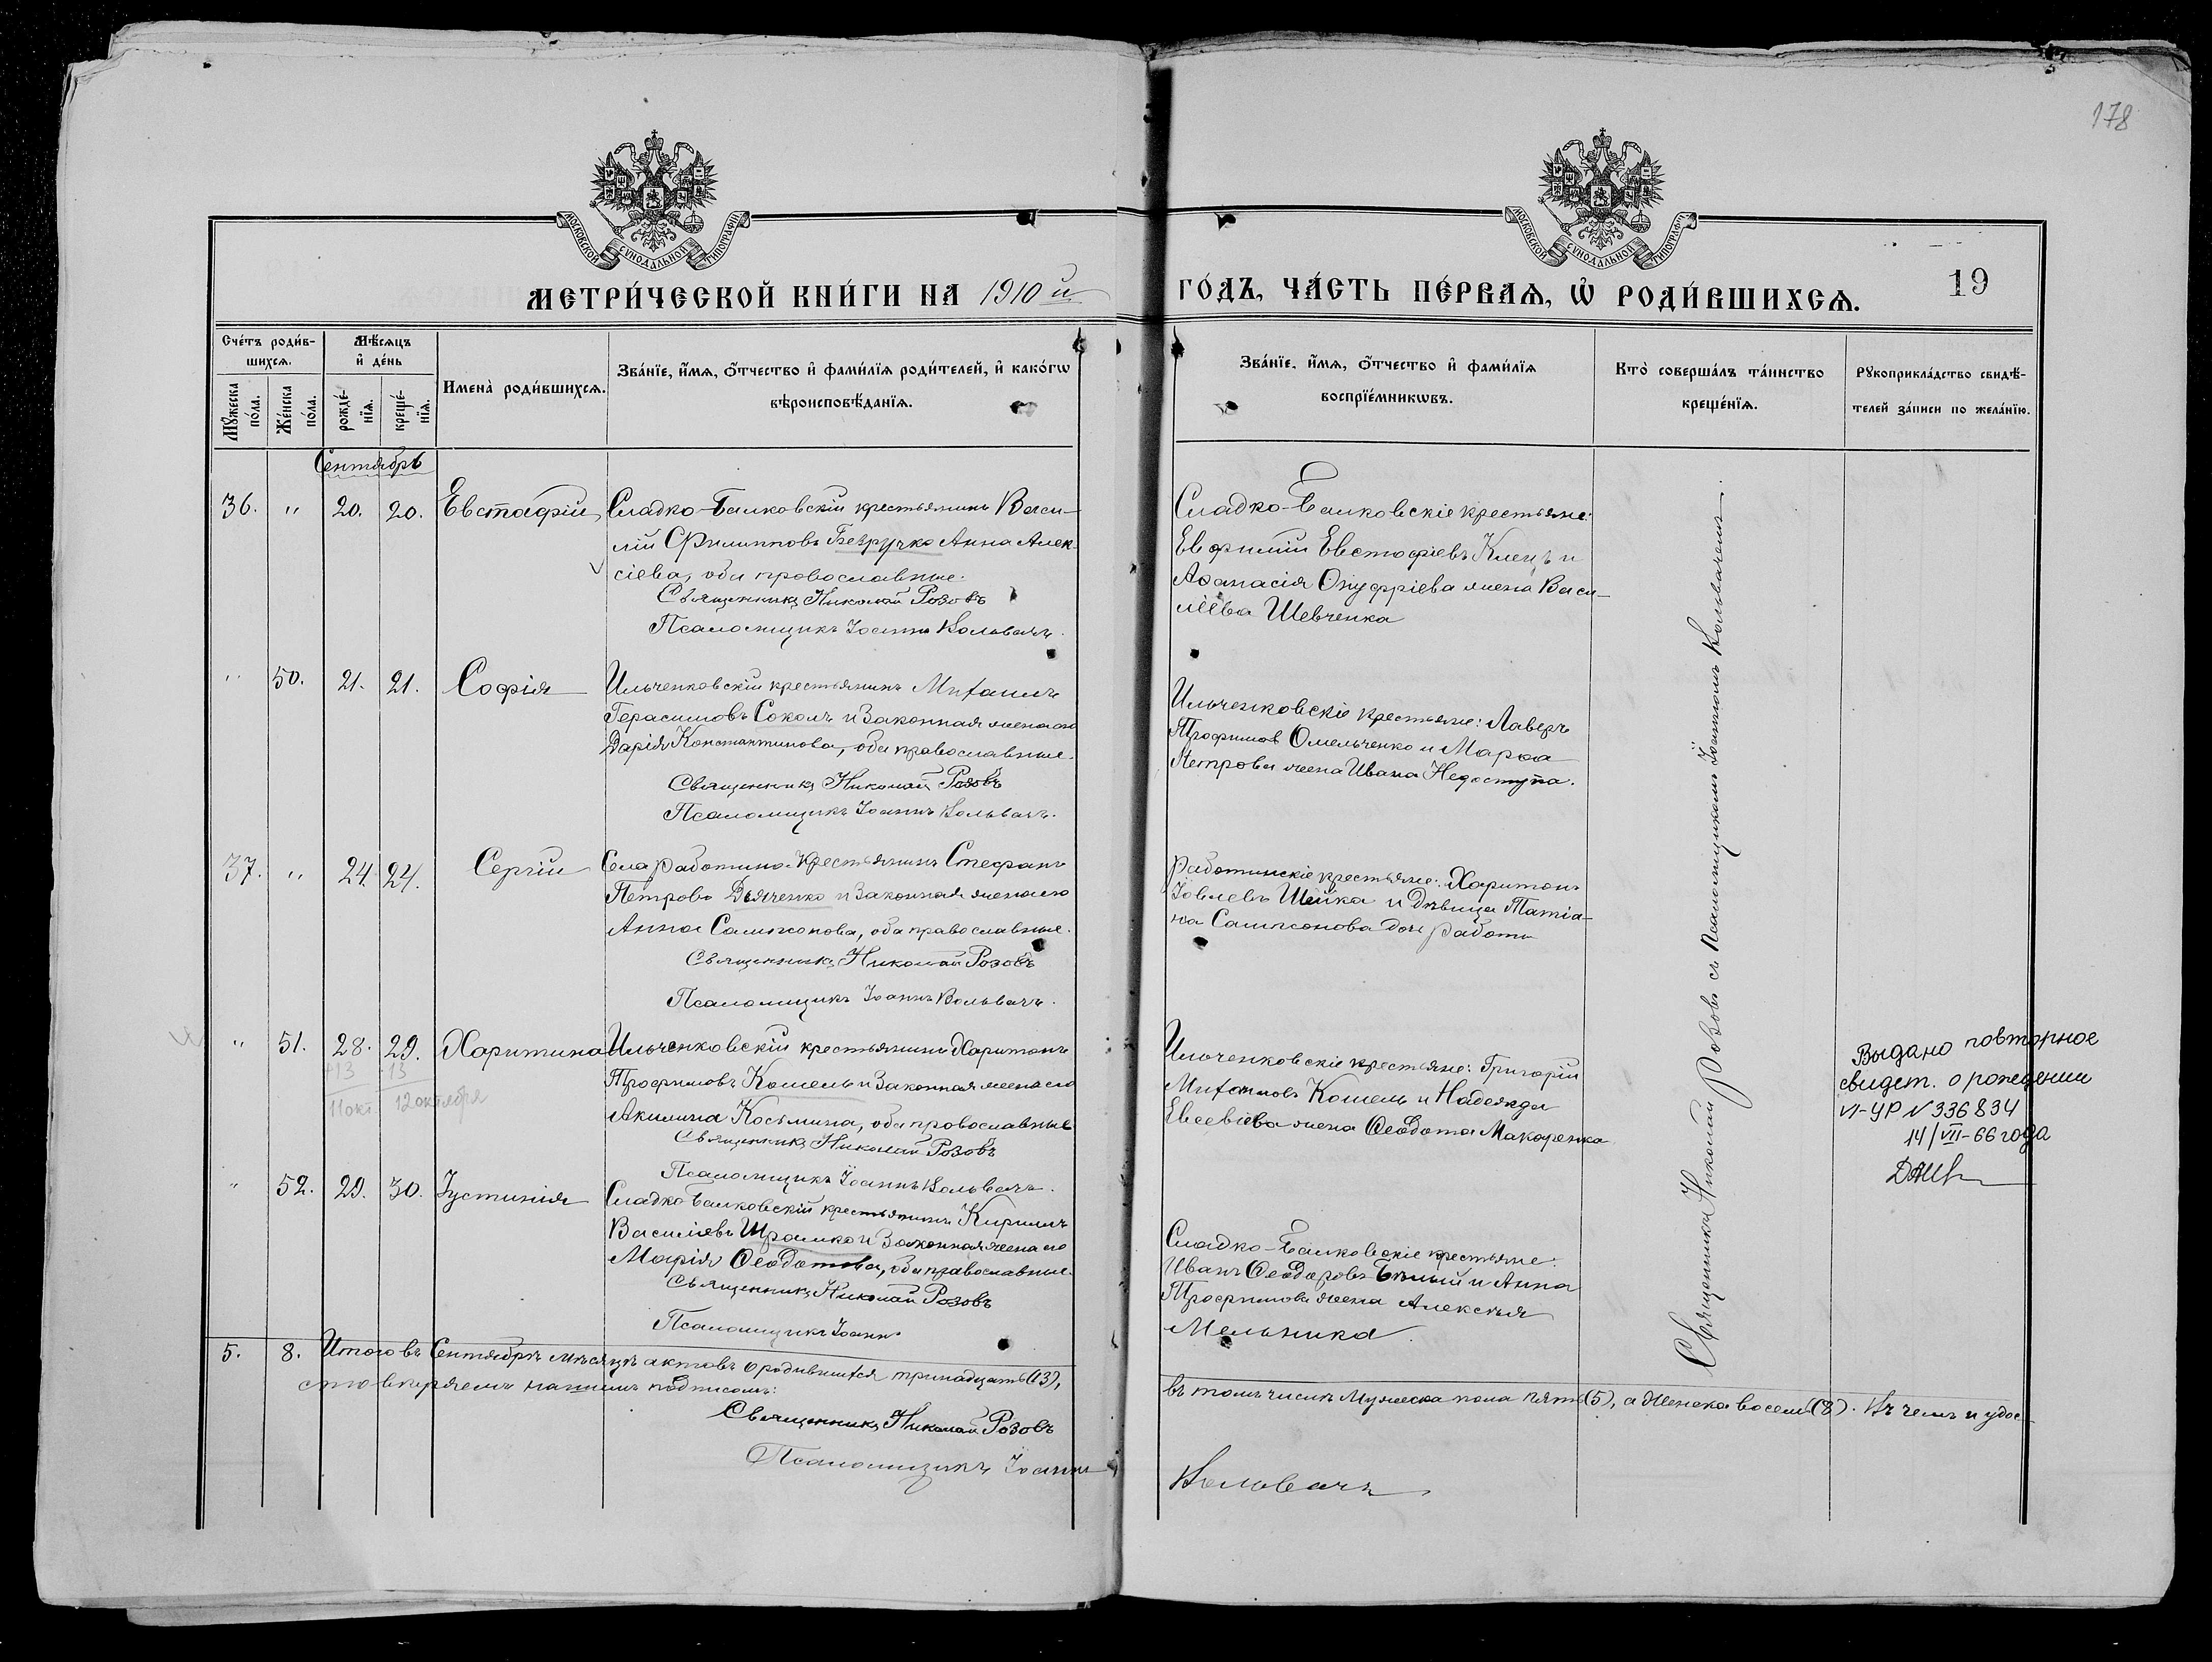 178
МОСКОВСКОЙ СѴНОДАЛЬНОЙ ТИПОГРАФІИ
МОСКОВСКОЙ СѴНОДАЛЬНОЙ ТИПОГРАФІИ
МЕТРИ́ЧЕСКОЙ КНИ́ГИ НА 1910й ГО́ДЪ, ЧА́СТЬ ПЕ́РВАѦ, Ѡ҆ РОДИ́ВШИХСѦ.
19
Сче́тъ роди́в-
шихсѧ.
Мꙋ́жеска по́ла.
Же́нска по́ла.
Мѣ́сяцъ
и҆ де́нь
рожде́-
нїѧ.
креще́-
нїѧ.
Имена̀ роди́вшихсѧ.
Зва́нїе, и҆́мѧ, о҆́тчество и҆ фами́лїѧ роди́телей, и҆ како́гѡ
вѣроисповѣ́данїѧ.
Зва́нїе, и҆́мѧ, о҆́тчество и҆ фами́лїѧ
воспрїе́мникѡвъ.
Кто̀ соверша́лъ та́инство
креще́нїѧ.
Рꙋкоприкла́дство свидѣ́-
телей за́писи по жела́нїю.
Сентябрь
36. " 20. 20. Евстафій
Сладко-Балковскій крестьянинъ Васи-
лій Филипповъ Безручко Анна Алек-
сіева, оба православные.
Священникъ Николай Розовъ
Псаломщикъ Іоаннъ Кольвачъ.
Сладко-Балковскіе крестьяне:
Евфимій Евстафіевъ Клецъ и
Аѳанасія Онуфріева жена Васи-
лiева Шевченка
" 50. 21. 21. Софія
Ильченковскій крестьянинъ Михаилъ
Герасимовъ Соколъ и Законная жена его
Дарія Константинова, оба православные.
Священникъ Николай Розовъ
Псаломщикъ Іоаннъ Кольвачъ.
Ильченковскіе крестьяне: Лавръ
Трофимов Омельченко и Марѳа
Петрова жена Ивана Недоступа.
37. " 24. 24. Сергій
Села Работина крестьянинъ Стефанъ
Петровъ Дьяченко и Законная жена его
Анна Сампсонова, оба православные.
Священникъ Николай Розовъ
Псаломщикъ Іоаннъ Кольвачъ.
Работинскіе крестьяне: Харитонъ
Іовлевъ Шейка и дѣвица Татіа-
на Сампсонова дочь
" 51. 28. 29. Харитина
+13 +13
11 окт. 12 октября
Ильченковскій крестьянинъ Харитонъ
Трофимовъ Кошель и Законная жена его
Акилина Косьмина, оба православные
Священникъ Николай Розовъ
Псаломщикъ Іоаннъ Кольвачъ.
Ильченковскіе крестьяне: Григорій
Михаиловъ Кошель и Надежда
Евсевіева жена Ѳеодота Макаренка
Выдано повторное
свидет. о рождении
VI-УР N 336834
14/VII-66 года
" 52. 29. 30. Іустинія
Сладко Балковскій крестьянинъ Кириллъ
Василіевъ Шрамко и Законная жена его
Марія Ѳеодотова, оба православные.
Священникъ Николай Розовъ
Псаломщикъ Іоаннъ
Сладко-Балковскіе крестьяне:
Иванъ Ѳеодоровъ Бѣлый и Анна
Трофимова жена Алексѣя
Мельника.
Священникъ Николай Розовъ съ Псаломщикомъ Іоанномъ Кольвачемъ.
5. 8. Итого въ Сентябрѣ мѣсяцѣ актовъ о родившихся тринадцать (13), въ томъ числѣ Мужеска пола пять (5), а Женска восемь (8). Въ чемъ и удос-
стовѣряемъ нашимъ подписомъ:
Священникъ Николай Розовъ
Псаломщикъ Іоаннъ Кольвачъ